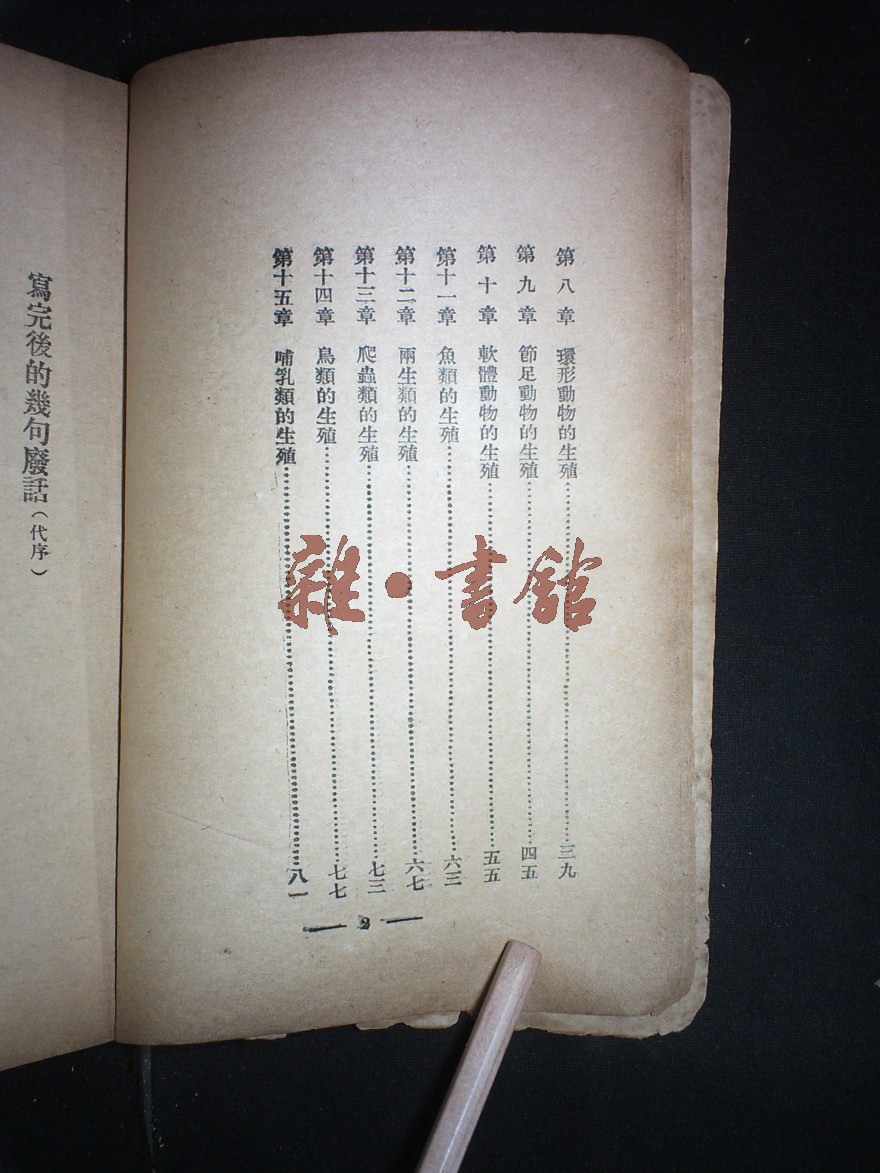 第八章 環形動物的生殖……三九
第九章 節足動物的生殖……四五
第十章 軟體動物的生殖……五五
第十一章 魚類的生殖……六三
第十二章 兩生類的生殖……六七
第十三章 爬蟲類的生殖……七三
第十四章 鳥類的生殖……七七
第十五章 哺乳類的生殖……八一
— 2 —
寫完後的幾句廢話（代序）
雜·書館